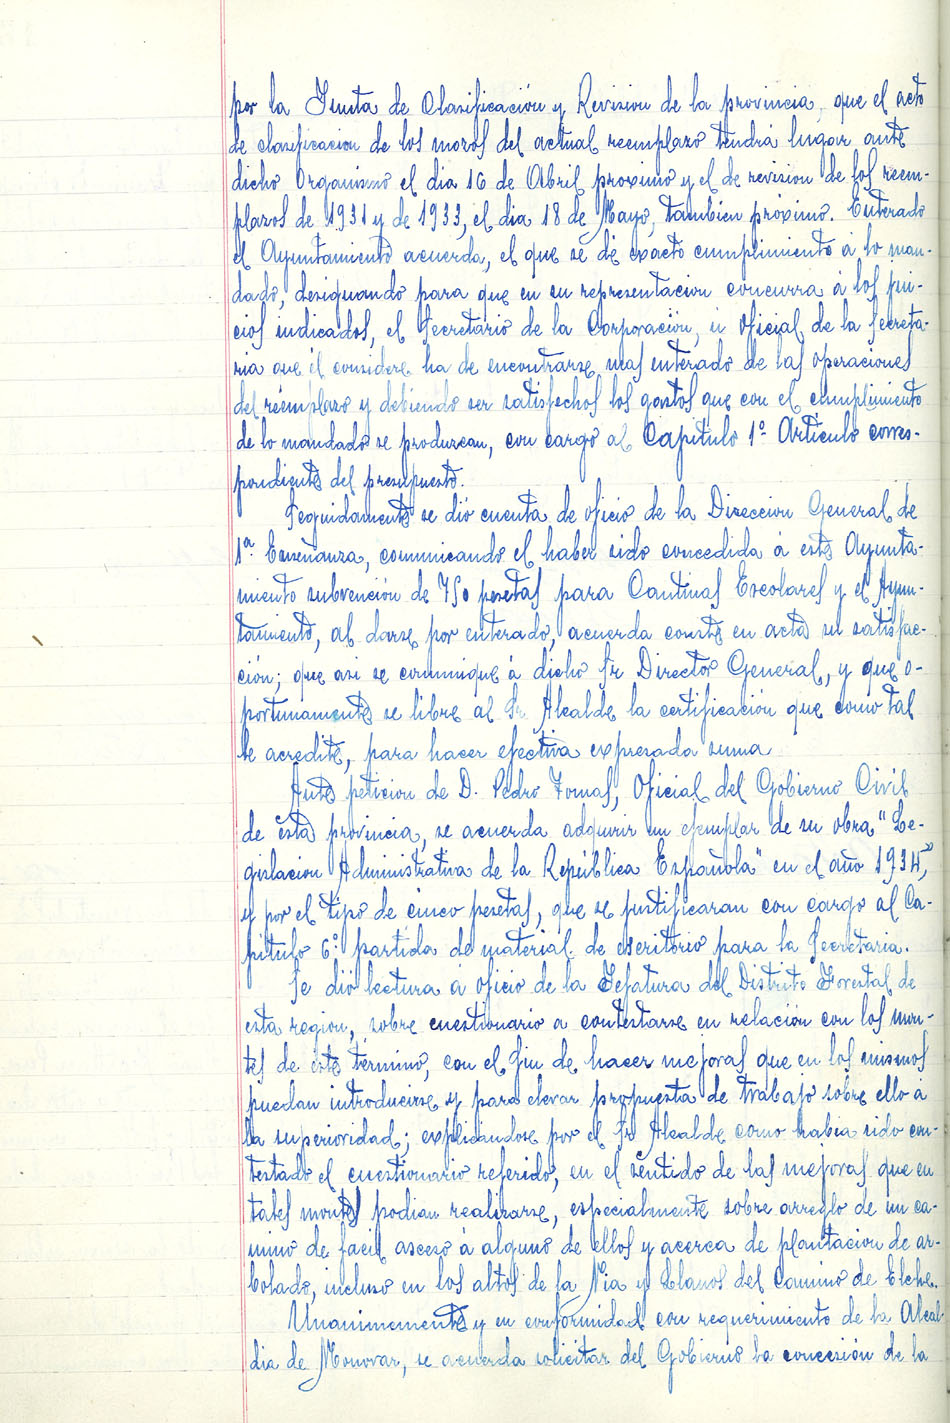 por la Junta de Clasificación y Revision de la provincia, que el acto
de clasificacion de los mozos del actual reemplazo tendrá lugar ante
dicho Organismo el dia 16 de Abril proximo y el de revision de los reem-
plazos de 1931 y de 1933, el dia 18 de Mayo, tambien próximo. Enterado
el Ayuntamiento acuerda, el que se dé exacto cumplimiento á lo man-
dado, designando para que en su representacion concurra á los jui-
cios indicados, el Secretario de la Corporación, ú oficial de la Secreta-
ria que él considere ha de encontrarse mas enterado de las operaciones
del reemplazo y debiendo ser satisfechos los gastos que con el cumplimiento
de lo mandado se produzcan, con cargo al Capítulo 1º Artículo corres-
pondiente del presupuesto.
Seguidamente se dió cuenta de oficio de la Direccion General de
1ª Enseñanza, comunicando el haber sido concedida á este Ayunta-
miento subvención de 750 pesetas para Cantinas Escolares y el Ayun-
tamiento, al darse por enterado, acuerda conste en acta su satisfac-
ción; que asi se comunique á dicho Sr Director General, y que o-
portunamente se libre al Sr. Alcalde la certificación que como tal
le acredite, para hacer efectiva expresada suma
Ante peticion de D. Pedro Tomas, Oficial del Gobierno Civil
de esta provincia, se acuerda adquirir un ejemplar de su obra "Le-
gislacion Administrativa de la República Española" en el año 1934,"
y por el tipo de cinco pesetas, que se justificaran con cargo al Ca-
pitulo 6º partida de material de escritorio para la Secretaria.
Se dió lectura á oficio de la Jefatura del Distrito Forestal de
esta region, sobre cuestionario a contestarse en relación con los mon-
tes de este término, con el fin de hacer mejoras que en los mismos
puedan introducirse y para elevar propuesta de trabajo sobre ello á
la superioridad; explicandose por el Sr Alcalde como habia sido con-
testado el cuestionario referido, en el sentido de las mejoras que en
tales montes podian realizarse, especialmente sobre arreglo de un ca-
mino de facil acceso á alguno de ellos y acerca de plantacion de ar-
bolado, incluso en los altos de la Nia y Llanos del Camino de Elche.
Unanimemente y en conformidad con requerimiento de la Alcal
dia de Monovar, se acuerda solicitar del Gobierno la concesión de la